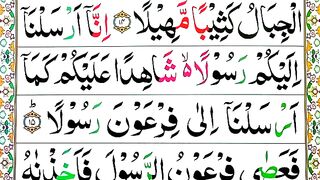 الْجِبَالُ كَثِيْبًا مَّهِيْلًا ۝۱۴ اِنَّاۤ اَرْسَلْنَاۤ
اِلَيْكُمْ رَسُوْلًا ۙ۬ شَاهِدًا عَلَيْكُمْ كَمَاۤ
اَرْسَلْنَاۤ اِلٰى فِرْعَوْنَ رَسُوْلًا ۝۱۵ؕ
فَعَصٰى فِرْعَوْنُ الرَّسُوْلَ فَاَخَذْنٰهُ